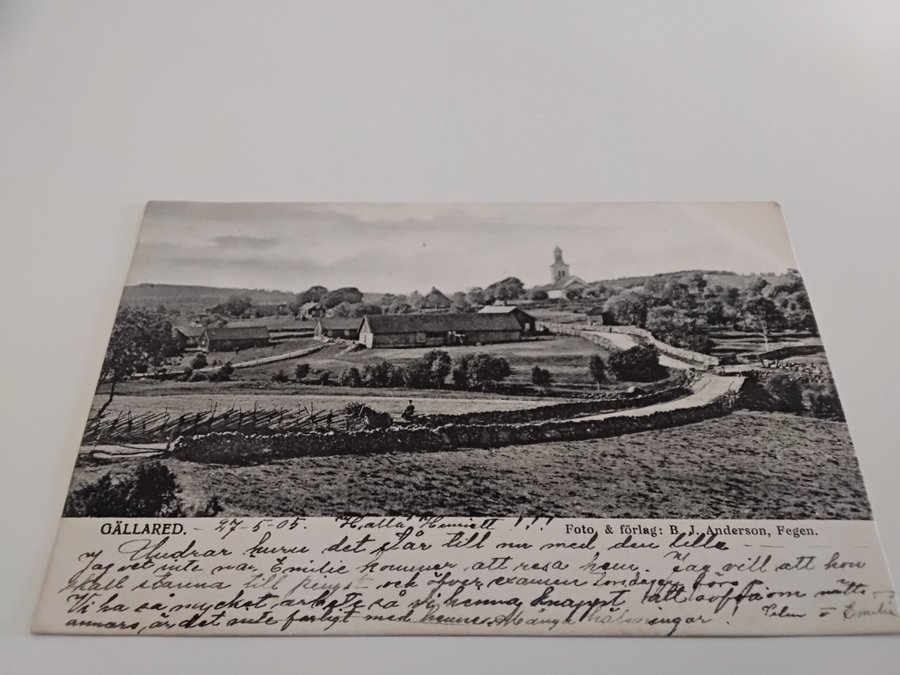 GÄLLARED. - 27-5-05. Hallå Henriett !!! Foto. & förlag: B. J. Anderson, Fegen.
Undrar huru det står till nu med den lilla
Jag vet inte när Emilie kommer att resa hem. Jag vill att hon
skall stanna till pingst och öfver examen
Vi ha så mycket arbete så vi hinna knappt att sofva om nätt-
annars, är det inte farligt med henne. Många hälsningar! Emilie